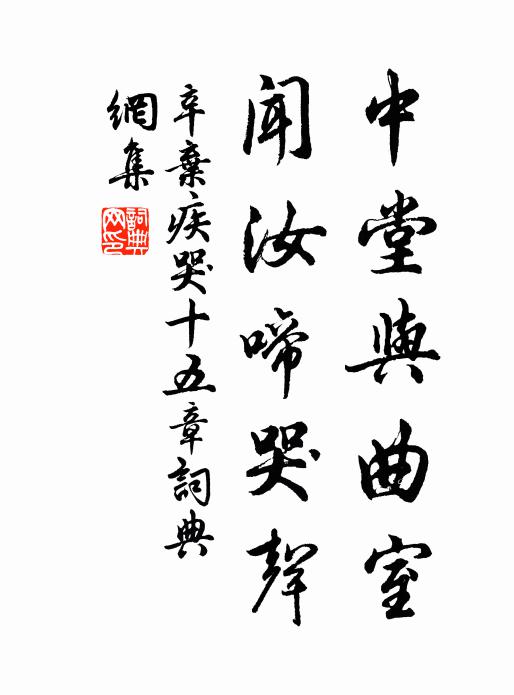 中堂與曲室
聞汝啼哭聲
辛棄疾哭十五章詞典
網集
詞典
网印